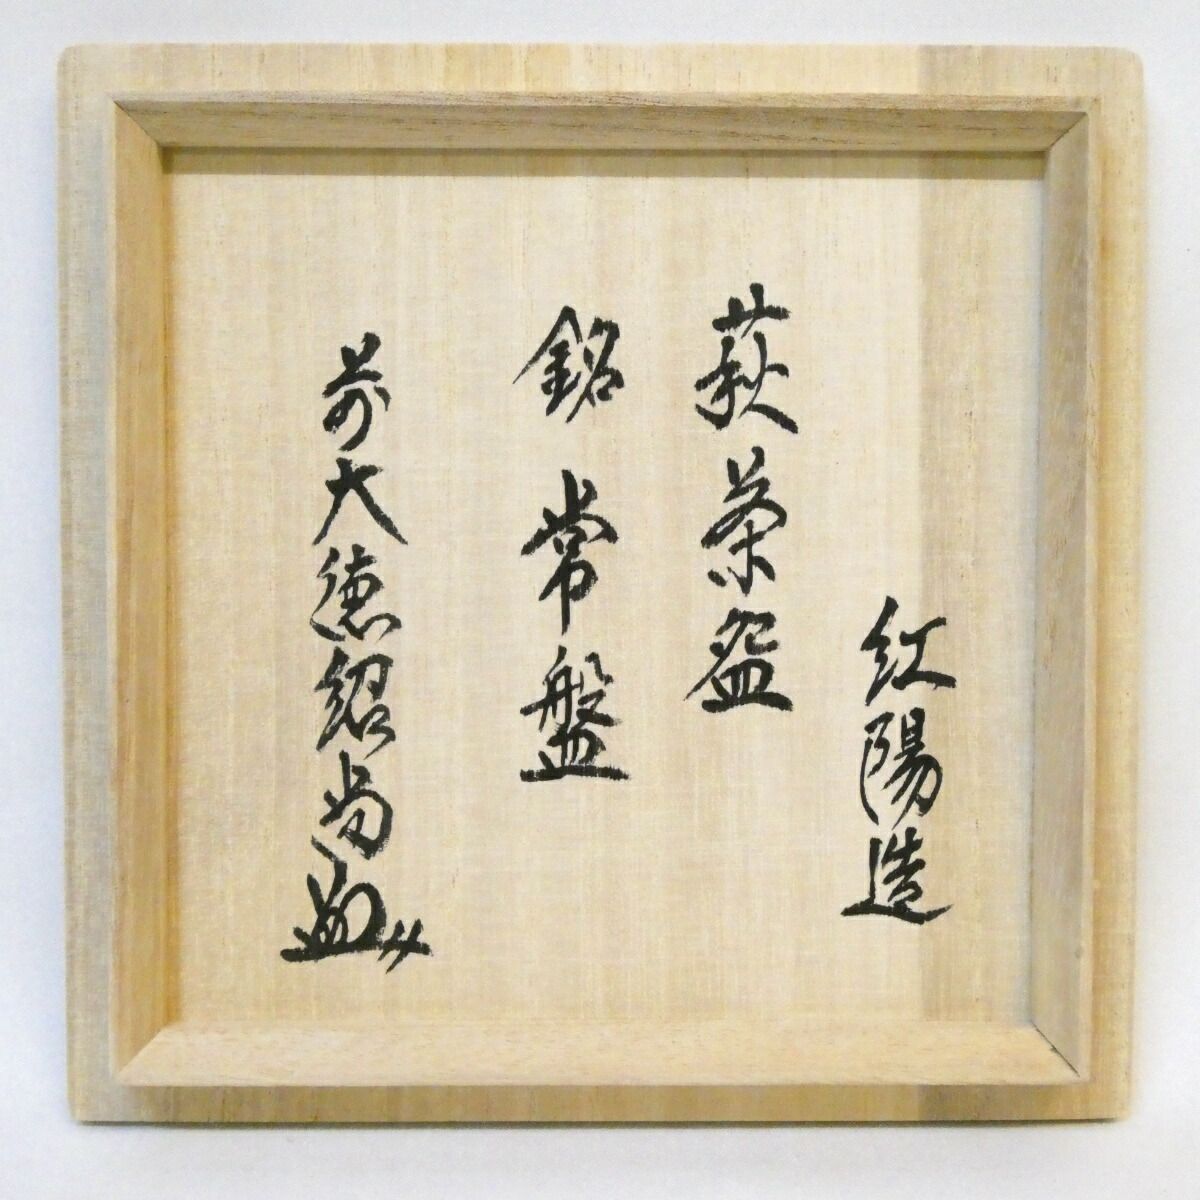 紅陽造
萩茶盌
銘 常盤
前大徳紹尚